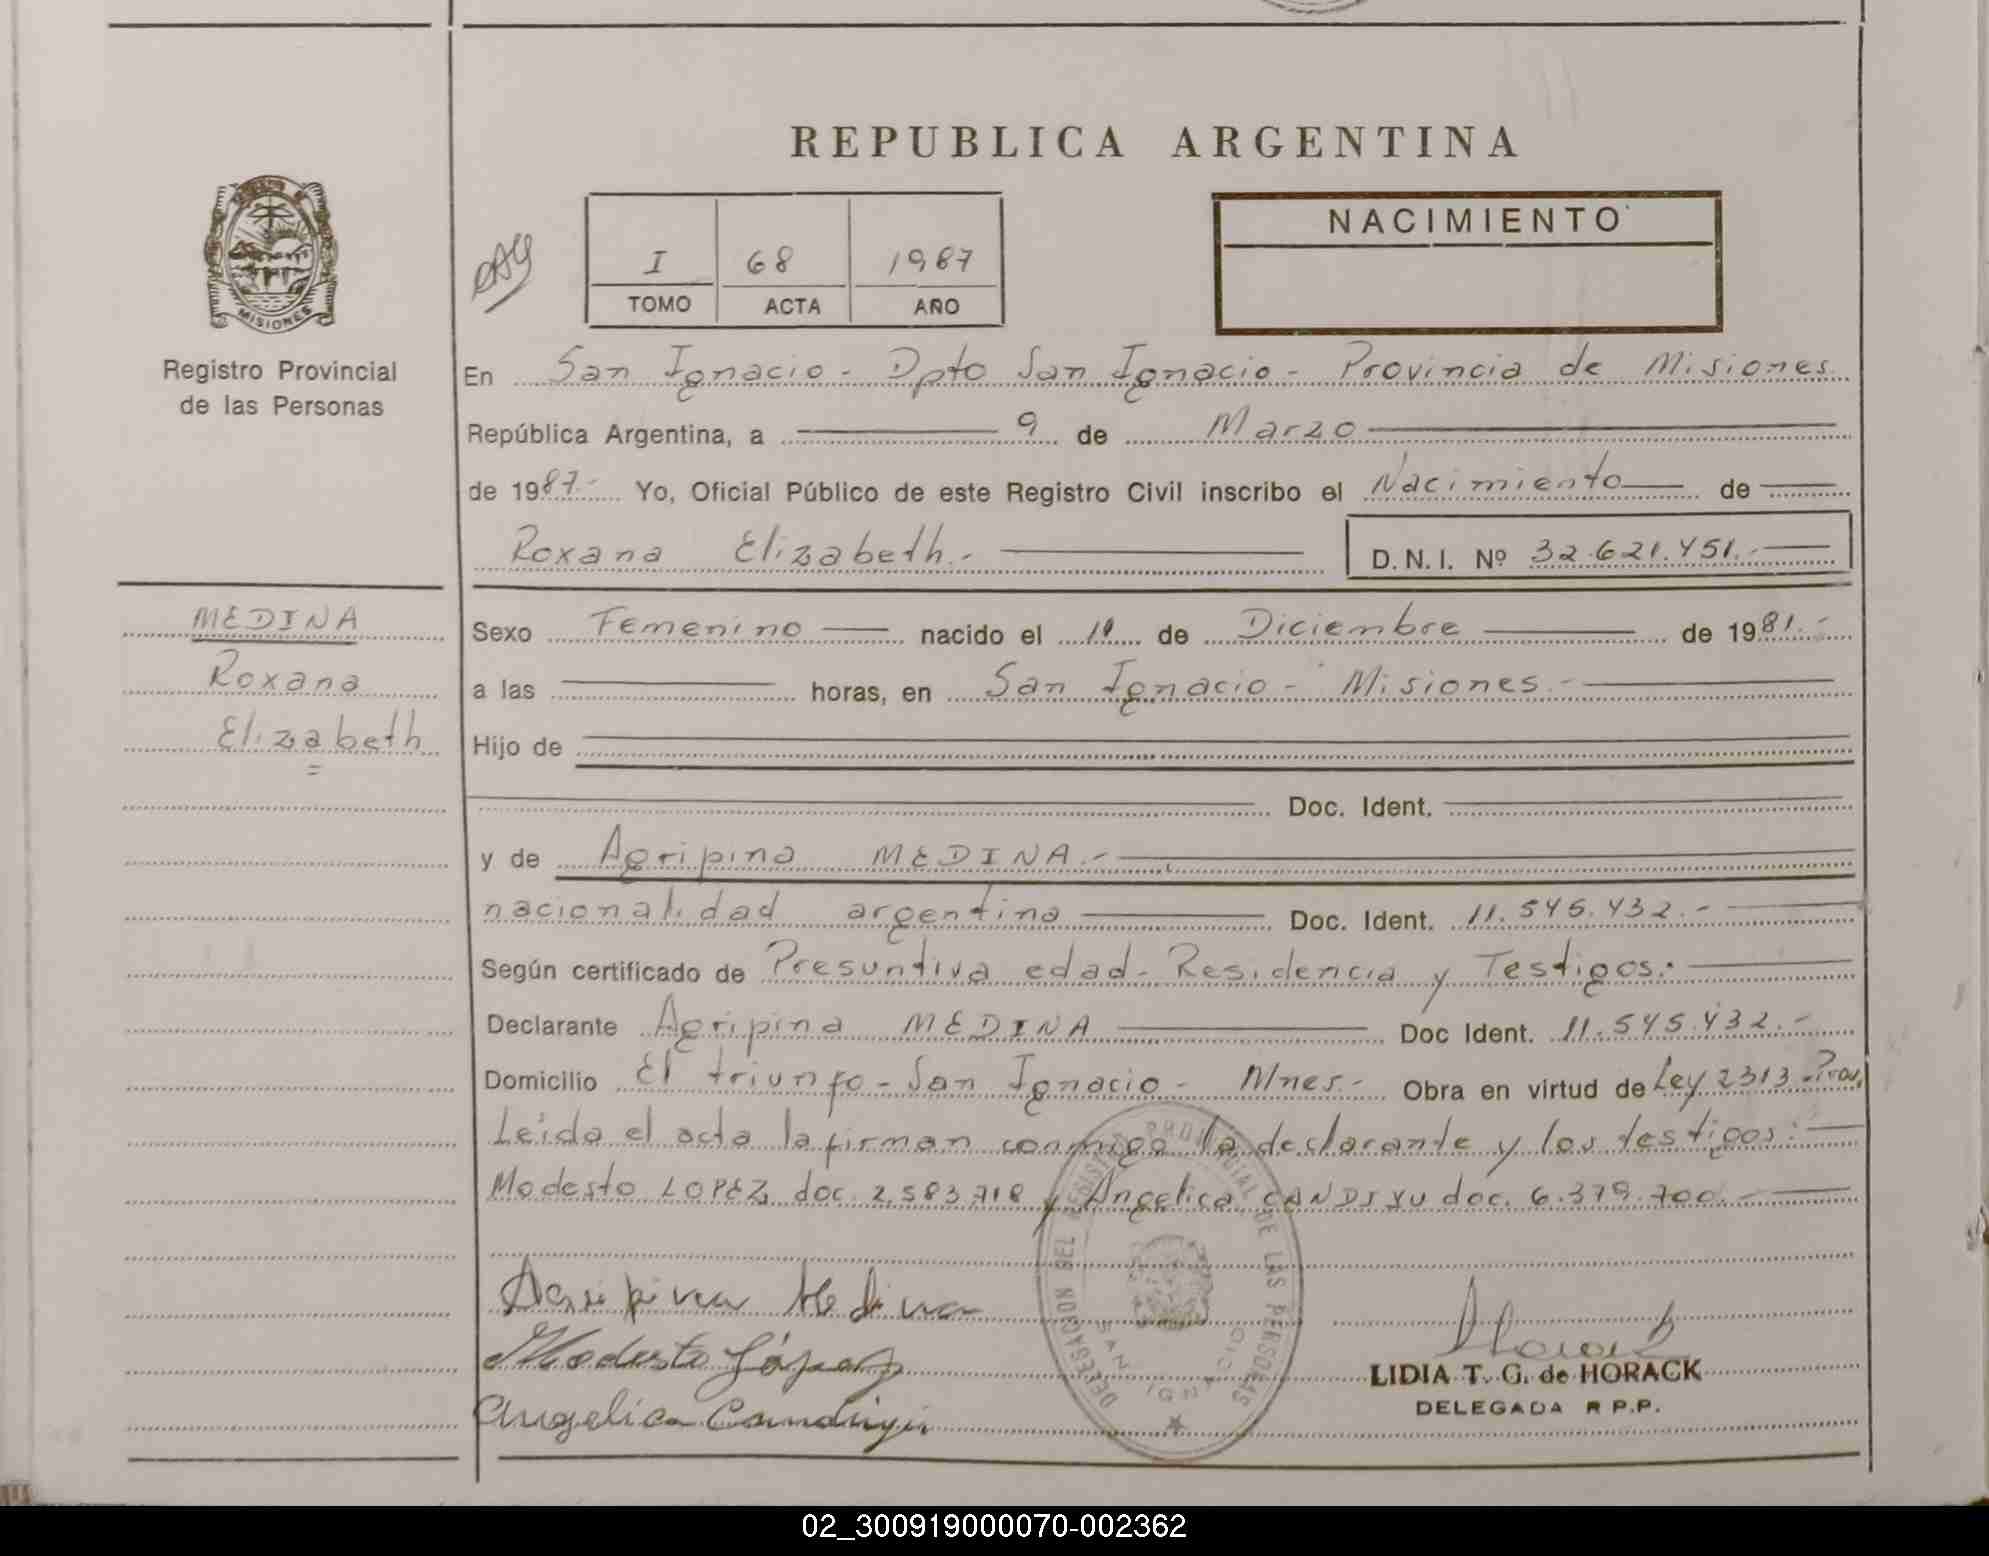 REPUBLICA ARGENTINA
NACIMIENTO
I 68 1987
TOMO ACTA AÑO
MISIONES
Registro Provincial
de las Personas
En San Ignacio - Dpto San Ignacio - Provincia de Misiones
República Argentina, a 9 de Marzo
de 1987.- Yo, Oficial Público de este Registro Civil inscribo el Nacimiento de
Roxana Elizabeth.- D.N.I. Nº 32.621.451.-
MEDINA
Roxana
Elizabeth
Sexo Femenino nacido el de Diciembre de 1981.-
a las horas, en San Ignacio - Misiones.-
Hijo de
Doc. Ident.
y de Agripina MEDINA.-
nacionalidad argentina Doc. Ident. 11.545.432.-
Según certificado de Presuntiva edad - Residencia y Testigos.-
Declarante Agripina MEDINA Doc Ident. 11.545.432.-
Domicilio El triunfo - San Ignacio - Mnes.- Obra en virtud de Ley 2313 - Prov.
Leida el acta la firman conmigo la declarante y los testigos:
Modesto LOPEZ doc. 2.583.718 y Angelica CANDIYU doc. 6.379.700.-
Agripina Medina
Modesto López
Angelica Candiyú
DELEGACION DEL REGISTRO PROVINCIAL DE LAS PERSONAS
SAN IGNACIO
LIDIA T. G. de HORACK
DELEGADA R P.P.
02_300919000070-002362